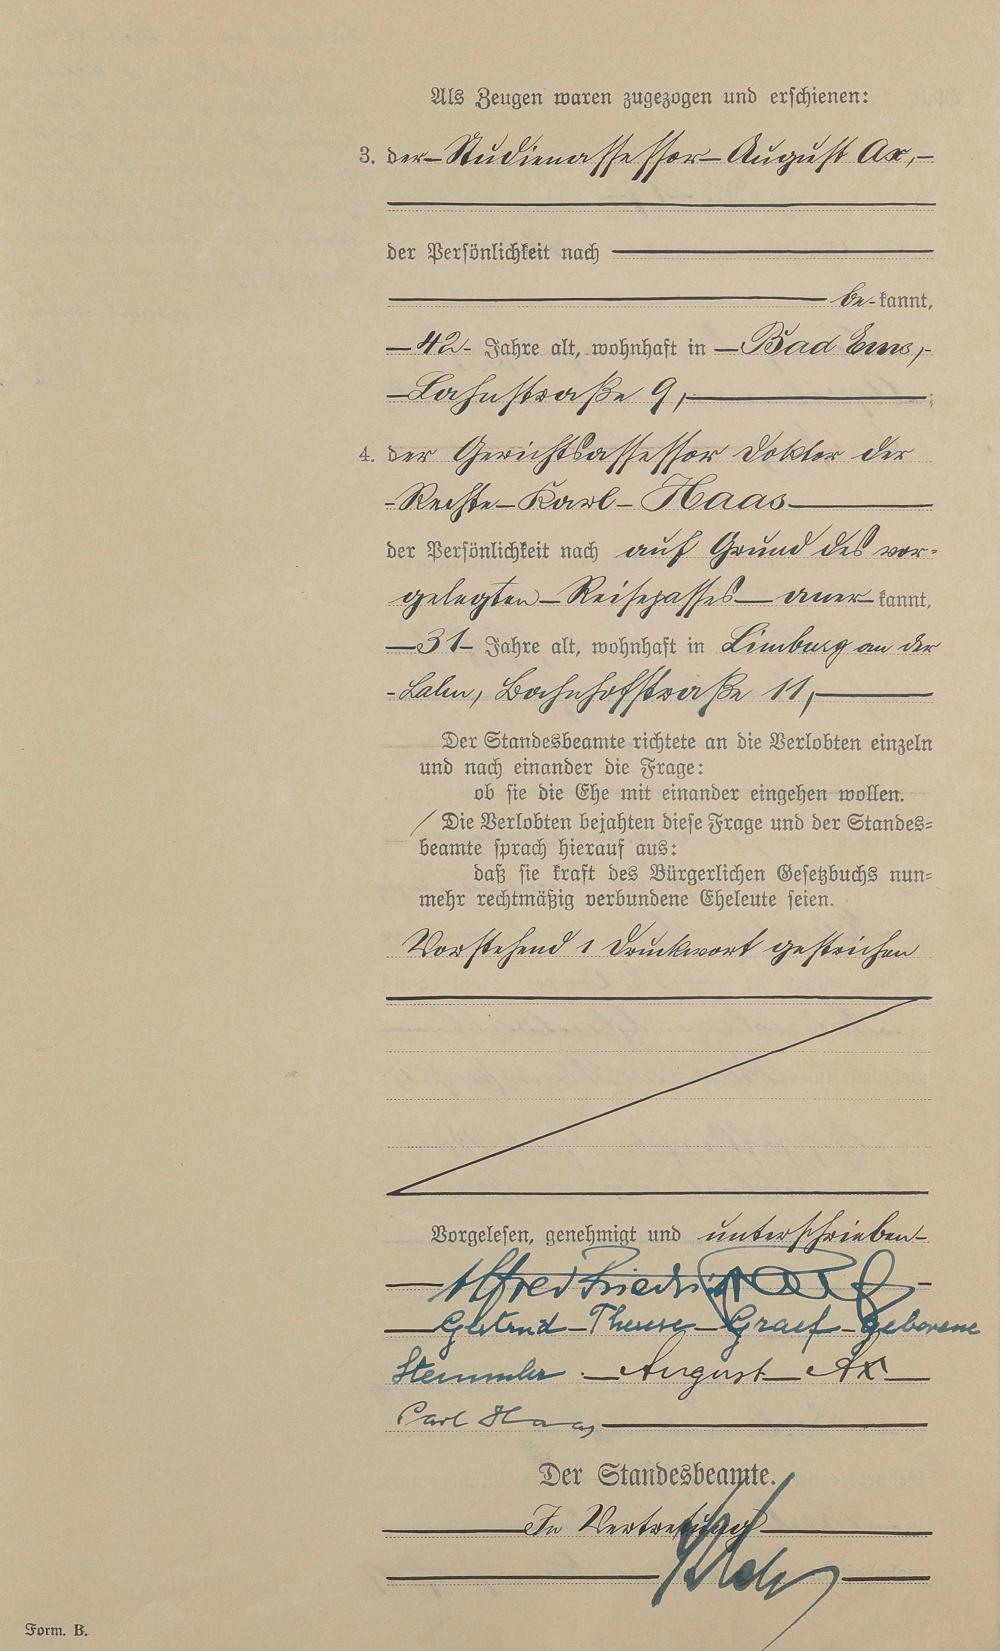 Als Zeugen waren zugezogen und erschienen:
3. der Studienassessor August Ax,
der Persönlichkeit nach
be-kannt,
42 Jahre alt, wohnhaft in Bad Ems,
Lahnstraße 9, ;
4. der Gerichtsassessor Doktor der
Rechte Karl Haas
der Persönlichkeit nach auf Grund des vor-
gelegten Reisepasses aner-kannt,
31 Jahre alt, wohnhaft in Limburg an der
Lahn, Bahnhofstraße 11,
Der Standesbeamte richtete an die Verlobten einzeln
und nach einander die Frage:
ob sie die Ehe mit einander eingehen wollen.
Die Verlobten bejahten diese Frage und der Standes-
beamte sprach hierauf aus:
daß sie kraft des Bürgerlichen Gesetzbuchs nun-
mehr rechtmäßig verbundene Eheleute seien.
Vorstehend 1 Druckwort gestrichen
Vorgelesen, genehmigt und unterschrieben
Alfred Friedrich Graef
Gertrud Therese Graef geborene
Stemmler August Ax
Carl Haas
Der Standesbeamte.
In Vertretung
Form. B.